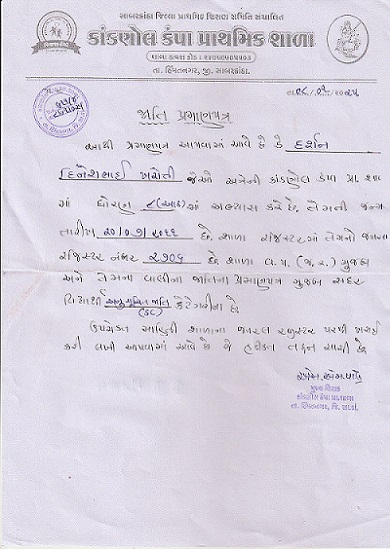 સાબરકાંઠા જિલ્લા પ્રાથમિક શિક્ષણ સમિતિ સંચાલિત
કાંકણોલ કંપા પ્રાથમિક શાળા
તા. હિંમતનગર, જી. સાબરકાંઠા.
જાતિ પ્રમાણપત્ર
આથી પ્રમાણપત્ર આપવામાં આવે છે કે દર્શન
દિનેશભાઈ જેઓ અત્રેની કાંકણોલ કંપા પ્રા. શાળા
માં ધોરણ ૮ (આઠ) માં અભ્યાસ કરે છે. તેમની જન્મ
તારીખ છે. શાળા રજિસ્ટરમાં તેમનો જનરલ
રજિસ્ટર નંબર ૨૭૦૬ છે. શાળા વ.પ. (જ.ર.) મુજબ
અને તેમના વાલીના જાતિના પ્રમાણપત્ર મુજબ સદર
વિદ્યાર્થી અનુસૂચિત જાતિ કેટેગરીના છે.
(SC)
ઉપરોક્ત માહિતી શાળાના જનરલ રજીસ્ટર પરથી ખરાઈ
કરી લખી આપવામાં આવે છે જે હકીકત તદ્દન સાચી છે.
મુખ્ય શિક્ષક
કાંકણોલ કંપા પ્રા.શાળા
તા. હિંમતનગર, જિ. સાબરકાંઠા.